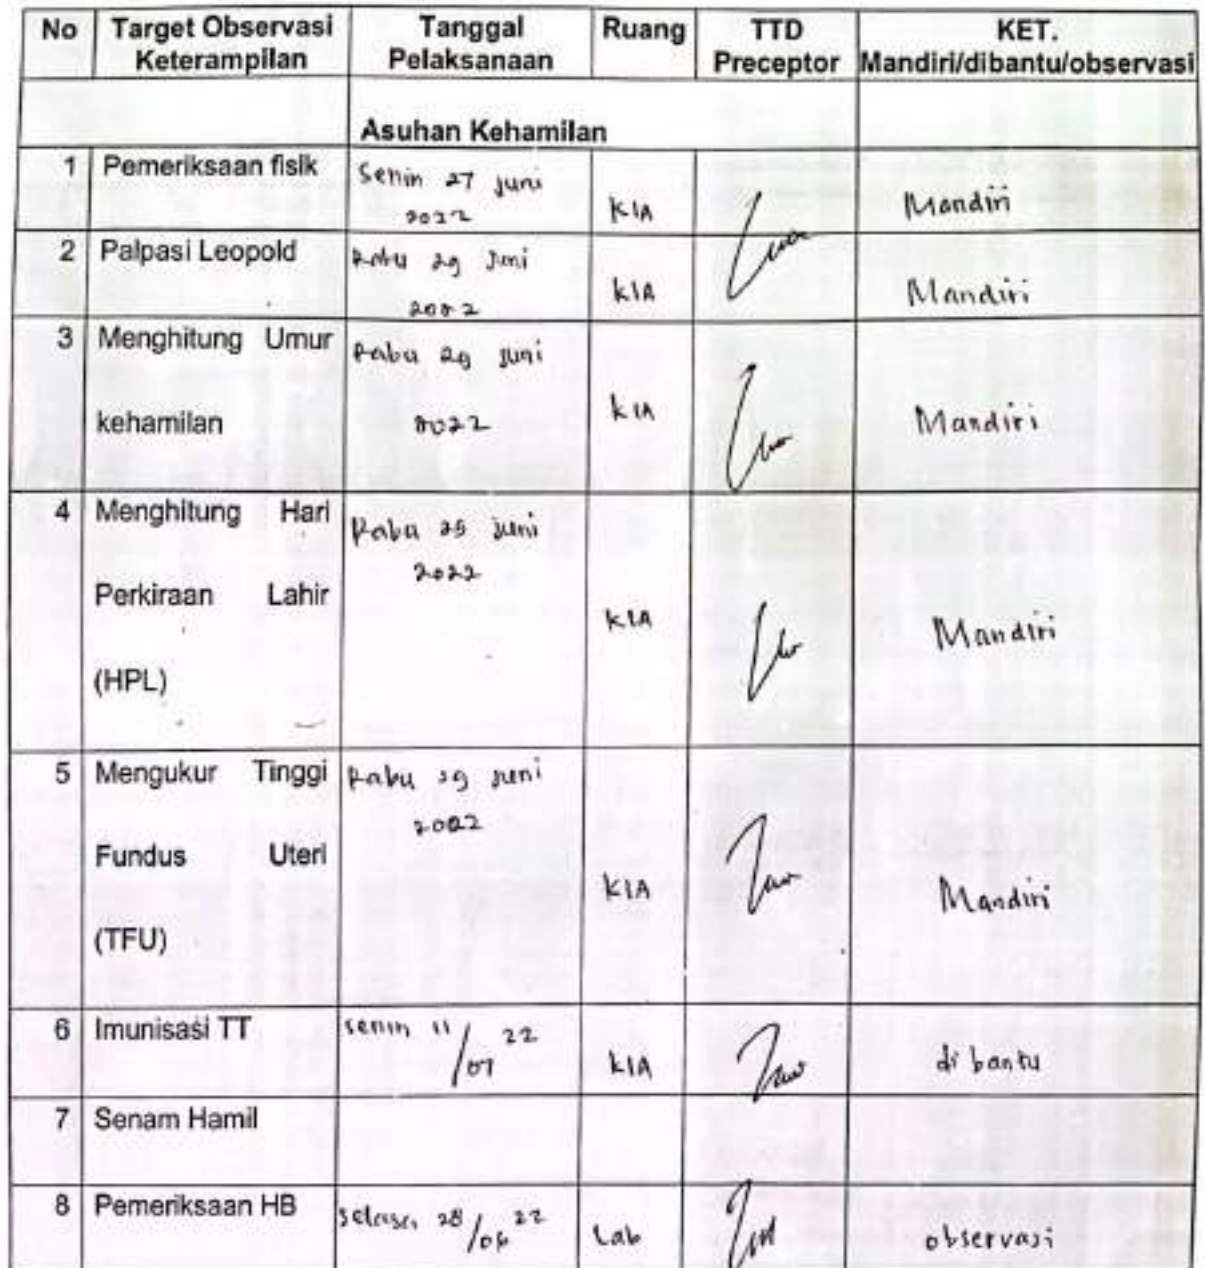 No Target Observasi Keterampilan Tanggal Pelaksanaan Ruang TTD Preceptor KET. Mandiri/dibantu/observasi
Asuhan Kehamilan
1 Pemeriksaan fisik Senin 27 juni 2022 KIA Mandiri
2 Palpasi Leopold Rabu 29 Juni 2022 KIA Mandiri
3 Menghitung Umur Rabu 29 juni
kehamilan 2022 KIA Mandiri
4 Menghitung Hari Rabu 29 juni
2022
Perkiraan Lahir KIA Mandiri
(HPL)
5 Mengukur Tinggi Rabu 29 juni
2022
Fundus Uteri KIA Mandiri
(TFU)
6 Imunisasi TT senin 11/07 22 KIA di bantu
7 Senam Hamil
8 Pemeriksaan HB selasa 28/06 22 Lab observasi